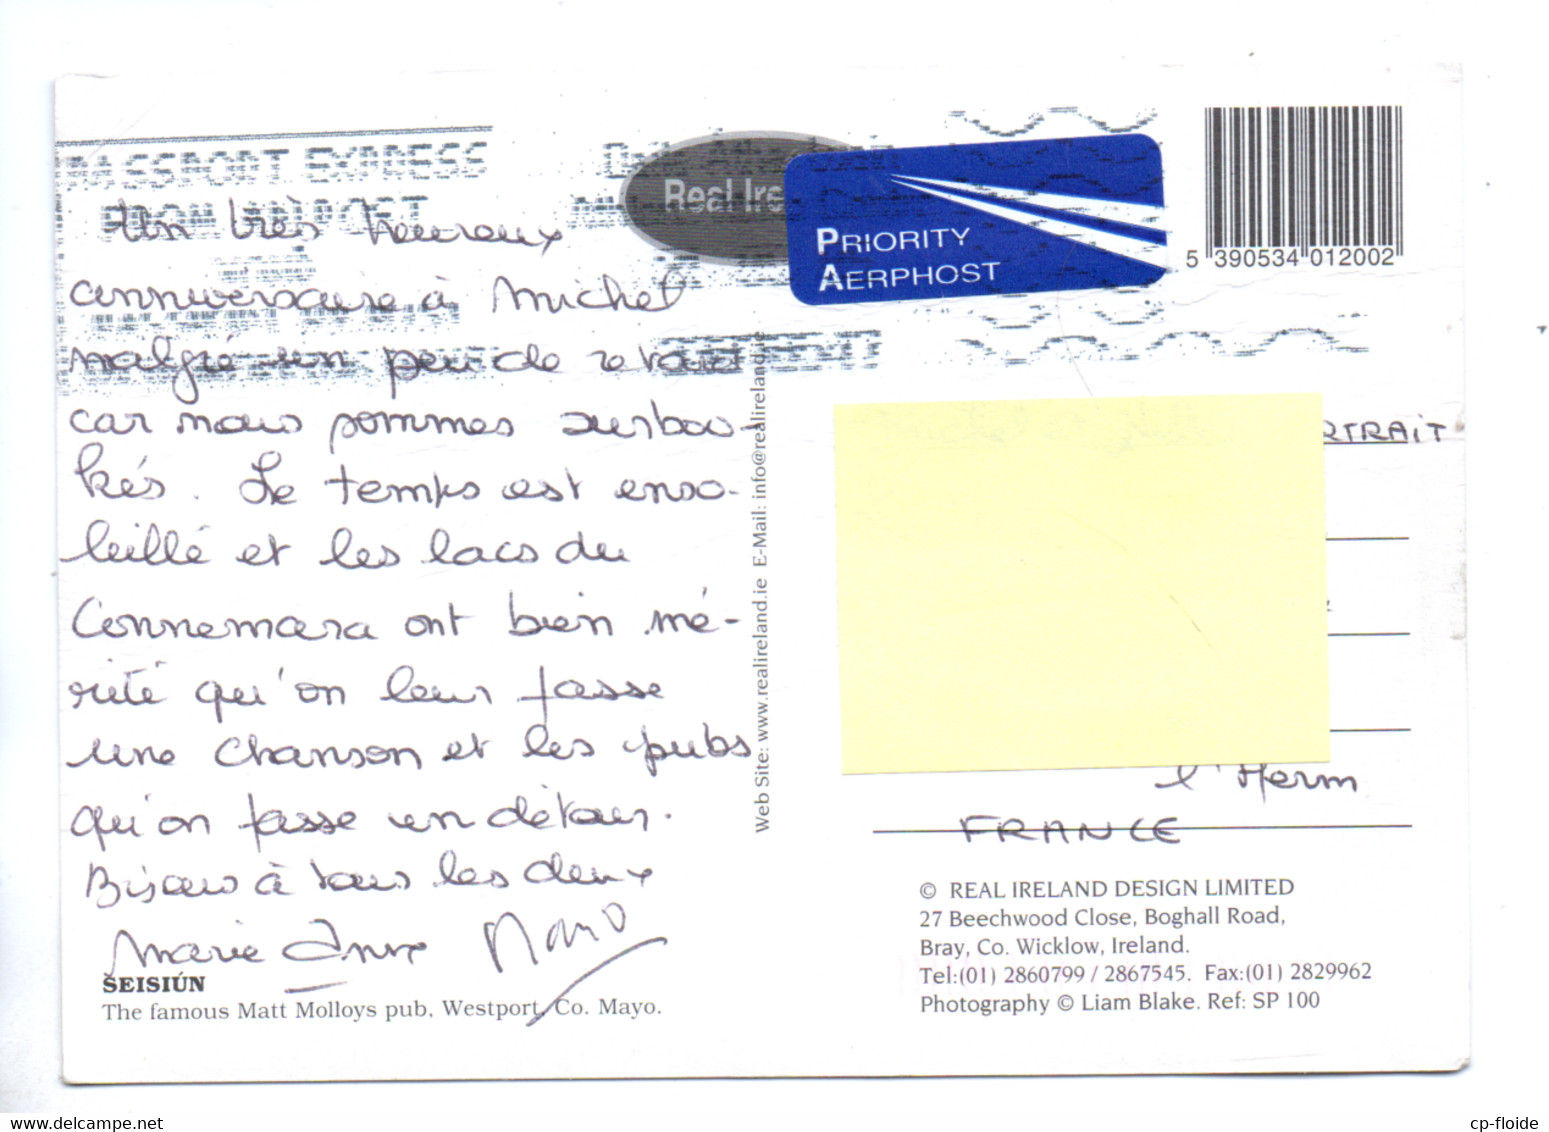 PASSPORT EXPRESS
FROM AN POST
Real Ire
PRIORITY
AERPHOST
5 390534 012002
Un très heureux
anniversaire à Michel
malgré un peu de retard
car nous sommes surboo-
kés. Le temps est enso-
leillé et les lacs du
Connemara ont bien mé-
rité qu'on leur fasse
une chanson et les pubs
qu'on fasse un détour.
Bisous à tous les deux
Marie Anne
SEISIÚN
The famous Matt Molloys pub, Westport, Co. Mayo.
Web Site: www.realireland.ie E-Mail: info@realireland.ie
RTRAIT
l'Herm
FRANCE
© REAL IRELAND DESIGN LIMITED
27 Beechwood Close, Boghall Road,
Bray, Co. Wicklow, Ireland.
Tel:(01) 2860799 / 2867545. Fax:(01) 2829962
Photography © Liam Blake. Ref: SP 100
cp-floide